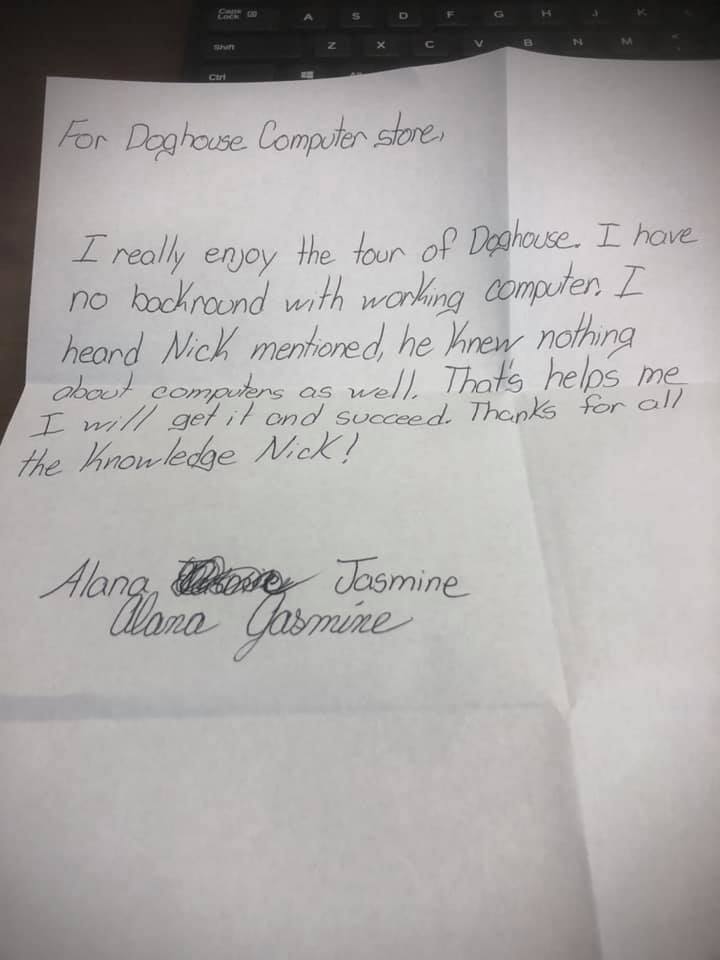 Caps Lock A S D F G H J K
Shift Z X C V B N M <
Ctrl
For Doghouse Computer store,
I really enjoy the tour of Doghouse. I have
no backround with working computer. I
heard Nick mentioned, he knew nothing
about computers as well. That's helps me
I will get it and succeed. Thanks for all
the knowledge Nick!
Alana Jasmine
Alana Jasmine